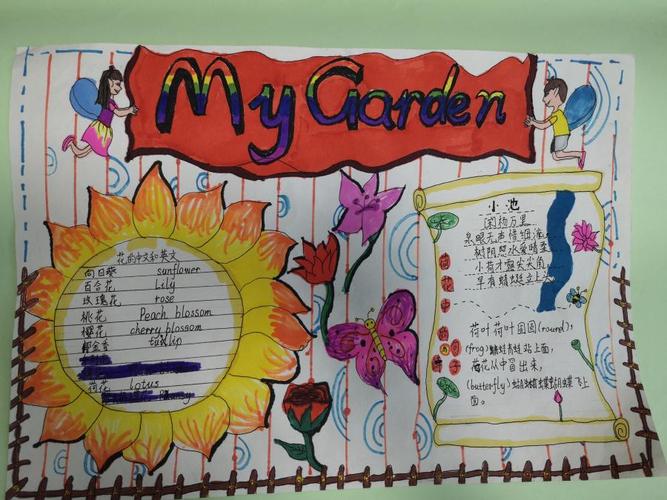 My Garden
花的中文和英文
向日葵 sunflower
百合花 Lily
玫瑰花 rose
桃花 Peach blossom
樱花 cherry blossom
郁金香 tuklip
荷花 lotus
小池
[宋]杨万里
泉眼无声惜细流
树阴照水爱晴柔
小荷才露尖尖角
早有蜻蜓立上头
荷花中的
荷叶荷叶圆圆(round),
(frog)青蛙站上面,
荷花从中冒出来,
(butterfly)蝴蝶飞上
面。